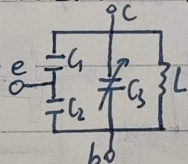 c
e
C₁
C₂
C₃
L
b